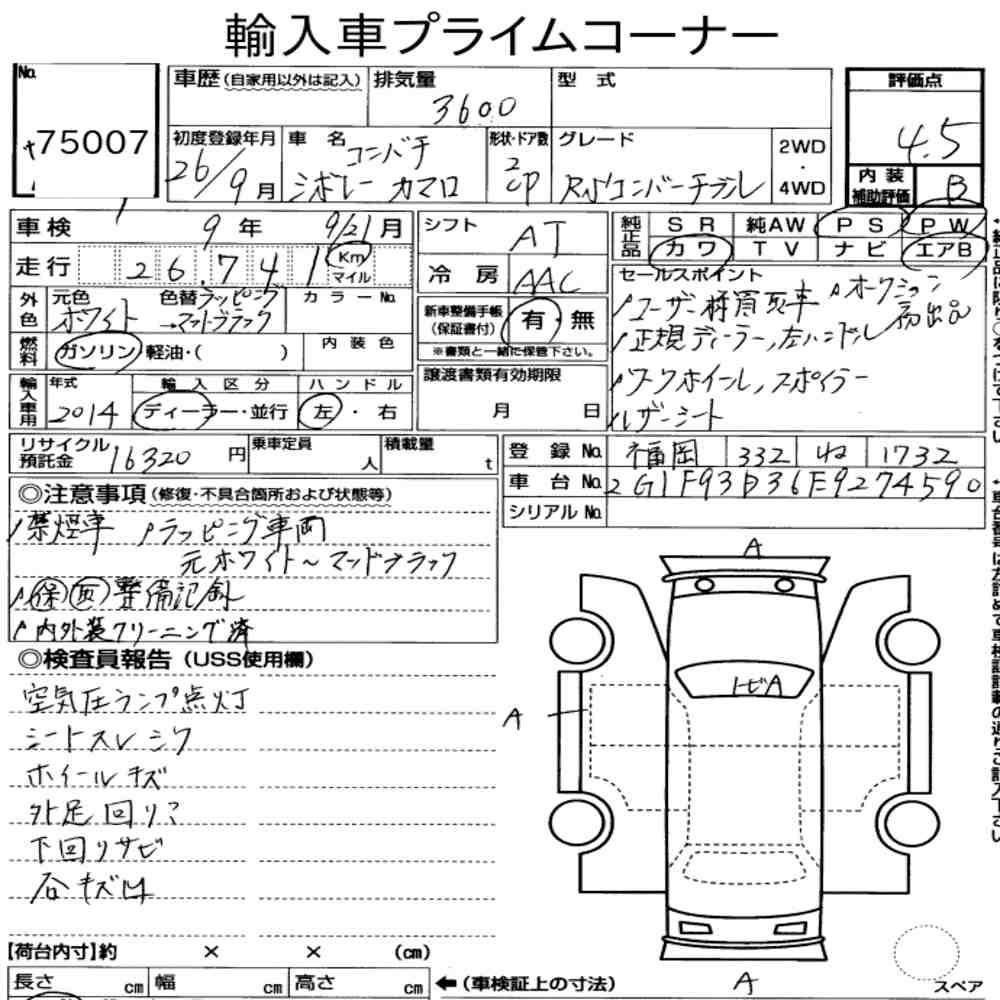 輸入車プライムコーナー
No.
75007
車歴(自家用以外は記入)
排気量
3600
型式
評価点
4.5
初度登録年月
26/9月
車名
コンバチ
シボレー カマロ
形状・ドア数
2
CP
グレード
RSコンバーチブル
2WD
・
4WD
内装
補助評価
B
車検
9年 9/21月
走行
26.741
Km
マイル
シフト
AT
冷房
AAC
純正品
SR 純AW PS PW
カワ TV ナビ エアB
外色
元色
ホワイト
色替ラッピング
→マットブラック
カラーNo.
新車整備手帳
(保証書付)
有 無
※書類と一緒に保管下さい。
セールスポイント
ユーザー様買取車 オークション初出品
正規ディーラー,左ハンドル
ワークホイール,スポイラー
レザーシート
燃料
ガソリン・軽油・( )
内装色
輸入車用
年式
2014
輸入区分
ディーラー・並行
ハンドル
左・右
譲渡書類有効期限
月 日
リサイクル
預託金
16320円
乗車定員
人
積載量
t
登録No.
福岡 332 ね 1732
車台No.
2G1F93D36E9274590
シリアルNo.
◎注意事項(修復・不具合箇所および状態等)
禁煙車 ラッピング車両
元ホワイト〜マッドブラック
保 取 整備記録
内外装クリーニング済
◎検査員報告(USS使用欄)
空気圧ランプ点灯
シートスレシワ
ホイールキズ
外足回りサ
下回りサビ
石キズ凹
A
トビA
A
A
【荷台内寸】約 × × (cm)
長さ cm 幅 cm 高さ cm
←(車検証上の寸法)
スペア